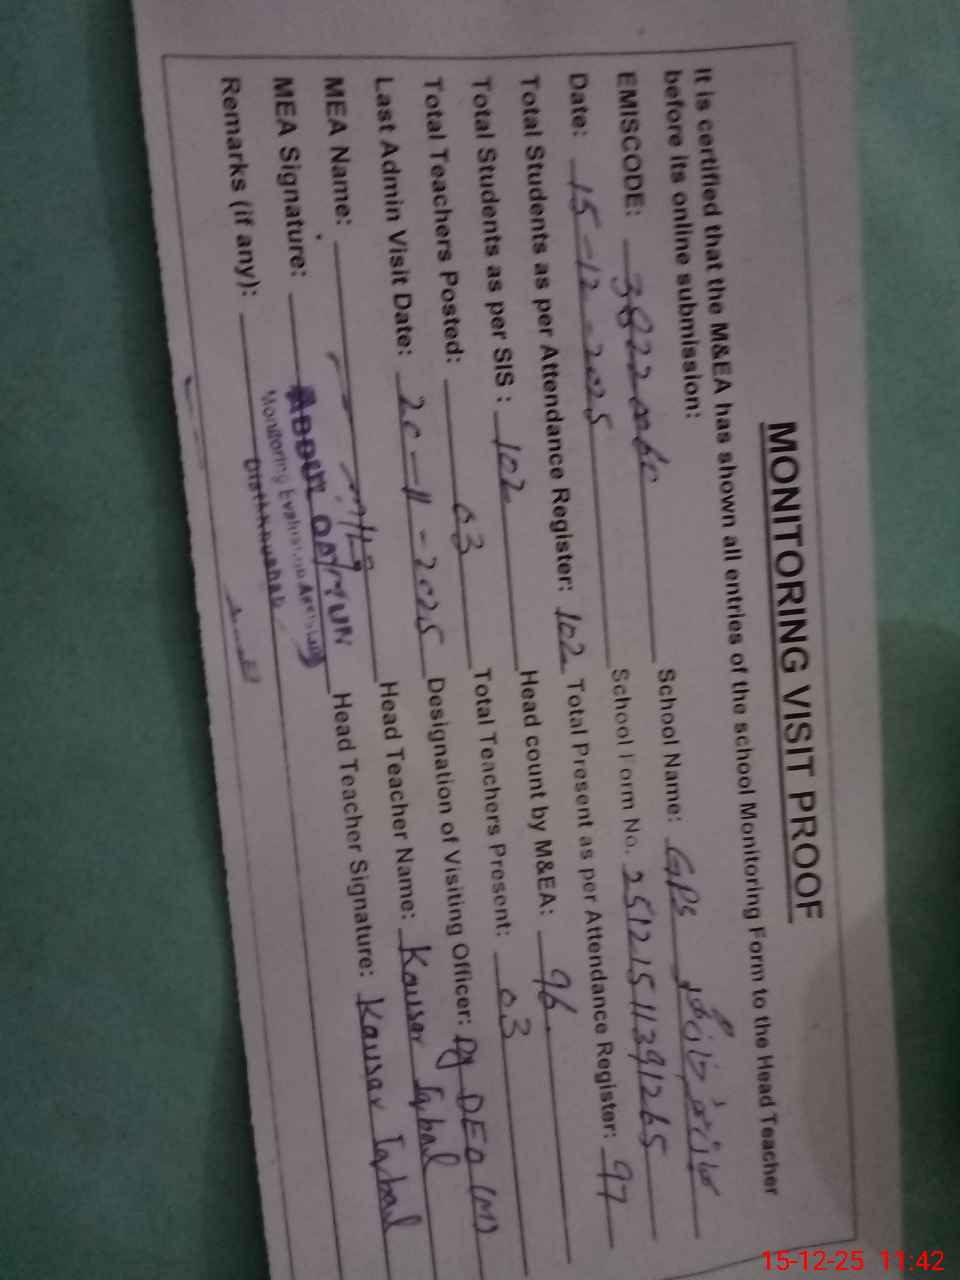 MONITORING VISIT PROOF
It is certified that the M&EA has shown all entries of the school Monitoring Form to the Head Teacher
before its online submission:
EMISCODE: 38220060 School Name: GPS
Date: 15-12-2025 School Form No. 25121511391265
Total Students as per Attendance Register: 102 Total Present as per Attendance Register: 97
Total Students as per SIS : 102 Head count by M&EA: 96
Total Teachers Posted: 03 Total Teachers Present: 03
Last Admin Visit Date: 20-11-2025 Designation of Visiting Officer: Dy DEO (M)
MEA Name: Head Teacher Name: Kousar Iqbal
MEA Signature: Head Teacher Signature: Kausar Iqbal
ABDUL
Monitoring Evaluation Assistant
Remarks (if any):
15-12-25 11:42